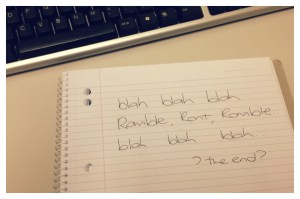 blah blah blah
Ramble, Rant, Ramble
blah blah blah.
? the end?